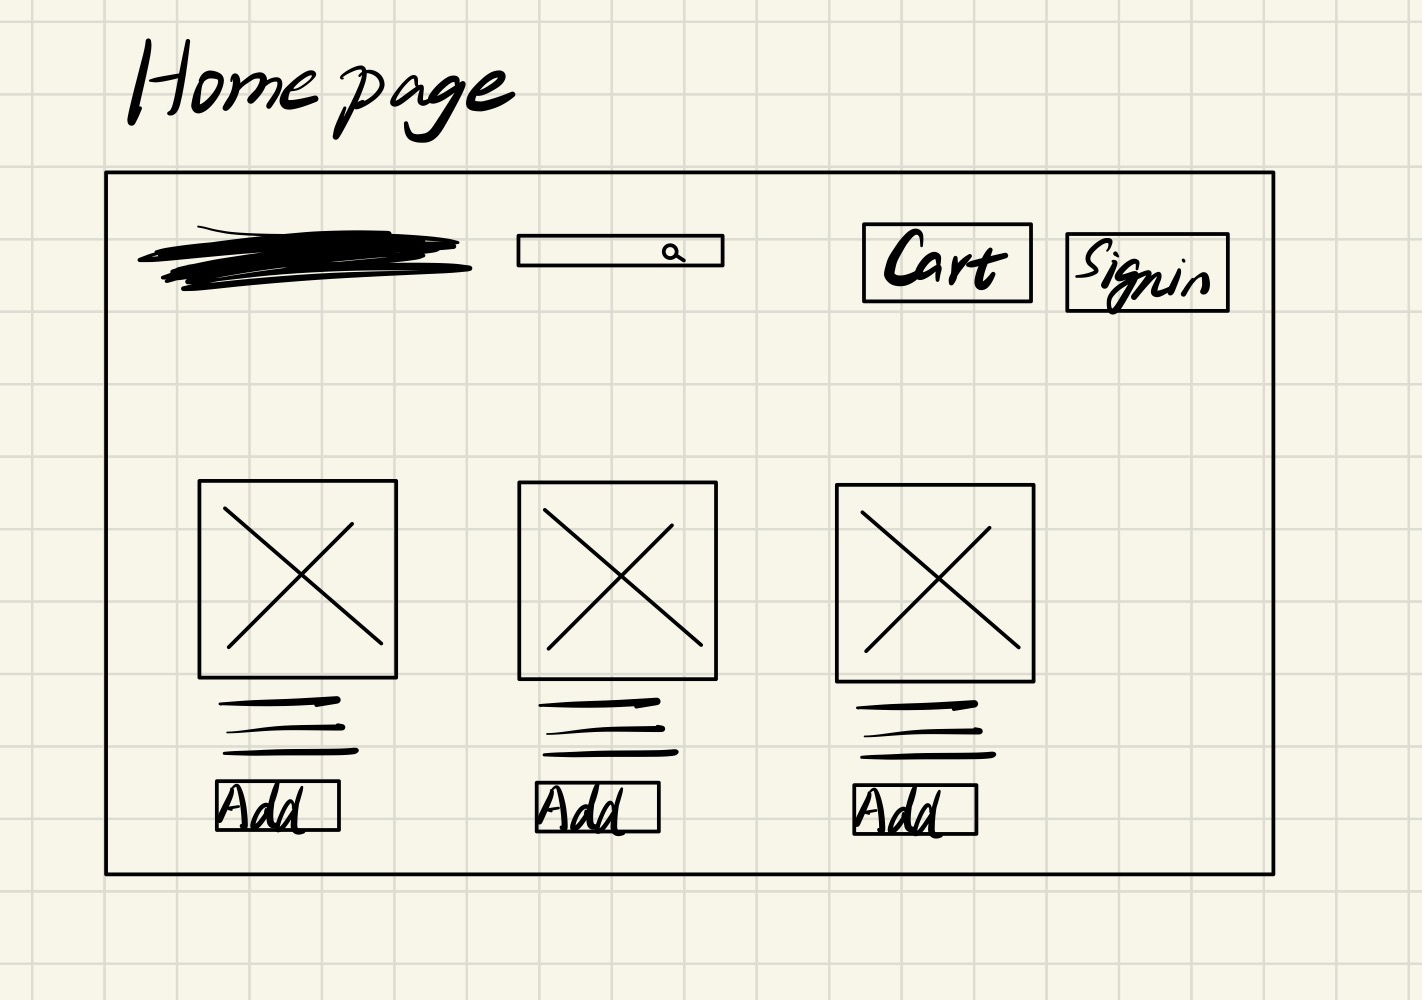 Home page
Cart
Signin
Add
Add
Add